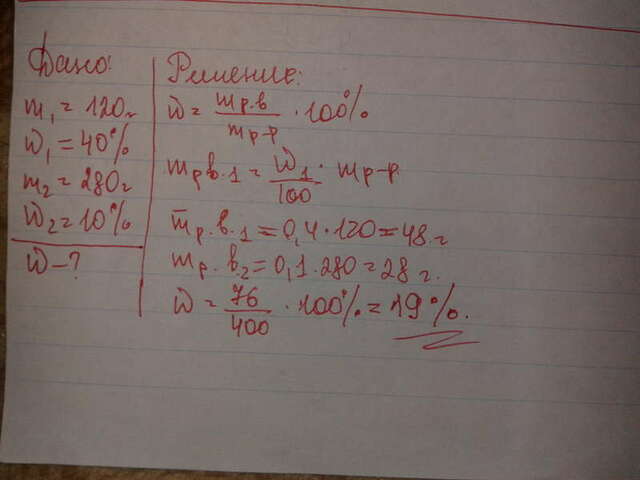 Дано:
m₁ = 120г
ω₁ = 40%
m₂ = 280г
ω₂ = 10%
ω - ?
Решение:
ω = mр.в / mр-р · 100%
mрв.1 = ω₁ / 100 · mр-р
mр.в.1 = 0,4 · 120 = 48 г
mр.в.2 = 0,1 · 280 = 28 г.
ω = 76 / 400 · 100% = 19%.